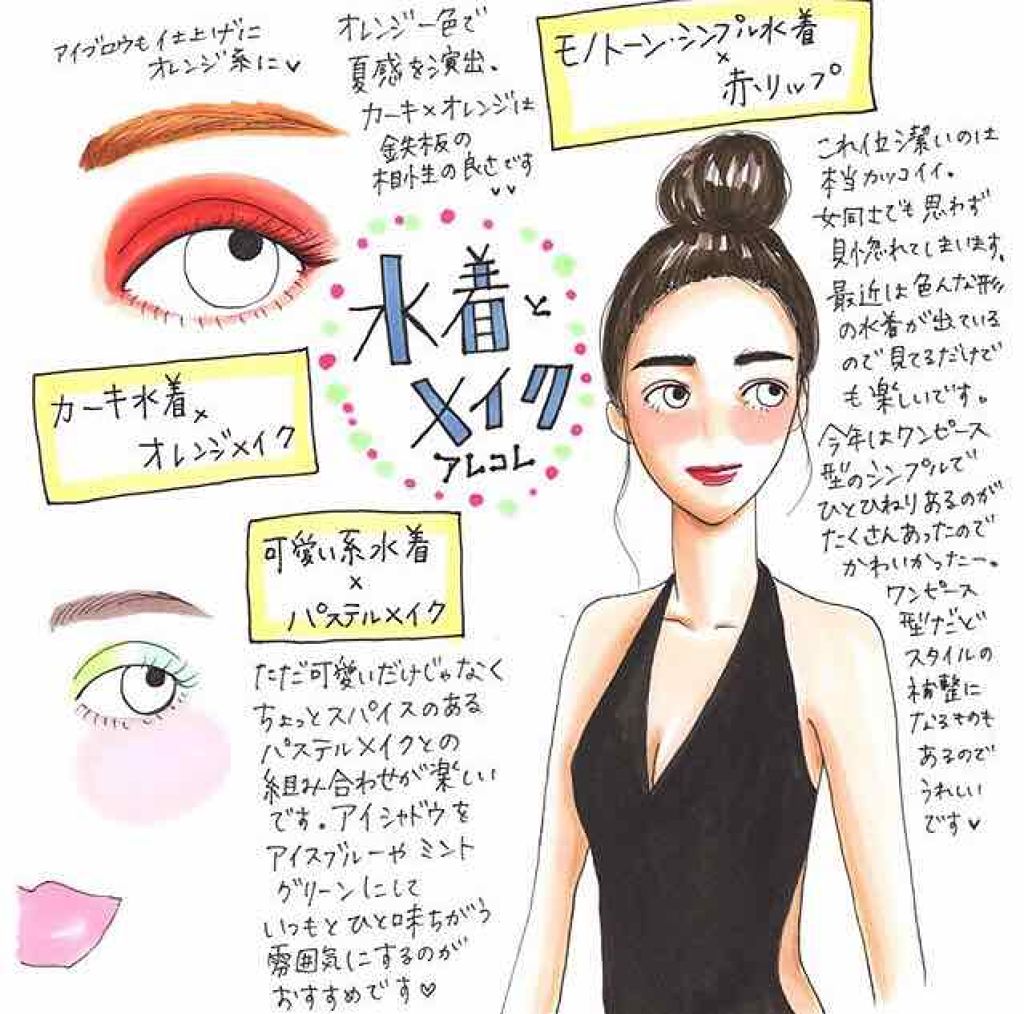 アイブロウも仕上げに
オレンジ系に♥
オレンジ一色で
夏感を演出、
カーキ×オレンジは
鉄板の
相性の良さです
♥♥
モノトーン・シンプル水着
×
赤リップ
水着と
メイク
アレコレ
カーキ水着×
オレンジメイク
これイセン潔いのは
本当カッコイイ。
女同士でも思わず
見惚れてしまいます。
最近は色んな形
の水着が出ている
ので見てるだけで
も楽しいです。
今年はワンピース
型のシンプルで
ひとひねりあるのが
たくさんあったので
かわいかったー。
ワンピース
型だと
スタイルの
補整に
なるものも
あるので
うれしい
です♥
可愛い系水着
×
パステルメイク
ただ可愛いだけじゃなく
ちょっとスパイスのある
パステルメイクとの
組み合わせが楽しい
です。アイシャドウを
アイスブルーやミント
グリーンにして
いつもとひと味ちがう
雰囲気にするのが
おすすめです♡